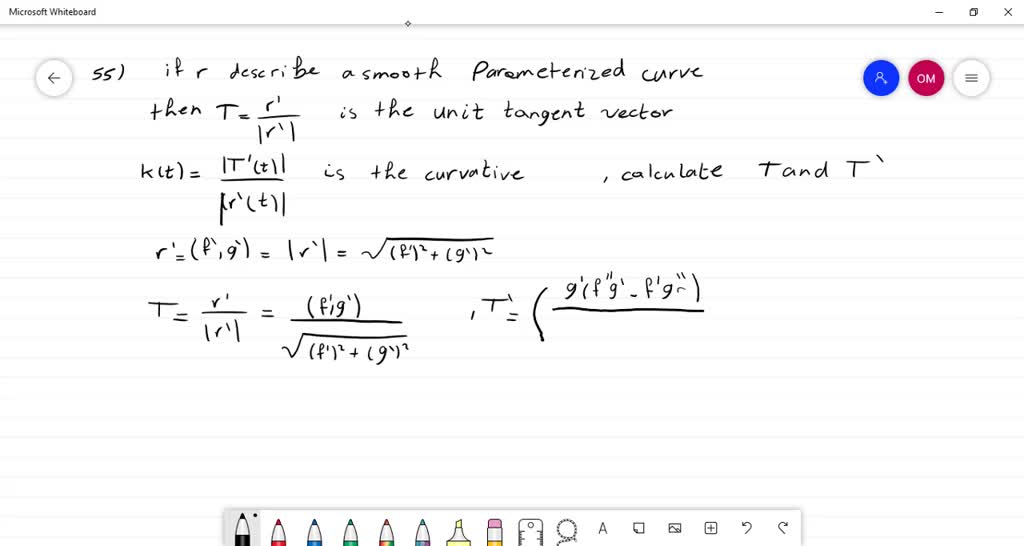 Microsoft Whiteboard
55) if r describe a smooth Parameterized curve
OM
then T = r' / |r'| is the unit tangent vector
k(t) = |T'(t)| / |r'(t)| is the curvative , calculate T and T'
r' = (f', g') = |r'| = √(f')² + (g')²
T = r' / |r'| = (f', g') / √(f')² + (g')² , T' = ( g'(f''g' - f'g'')
A